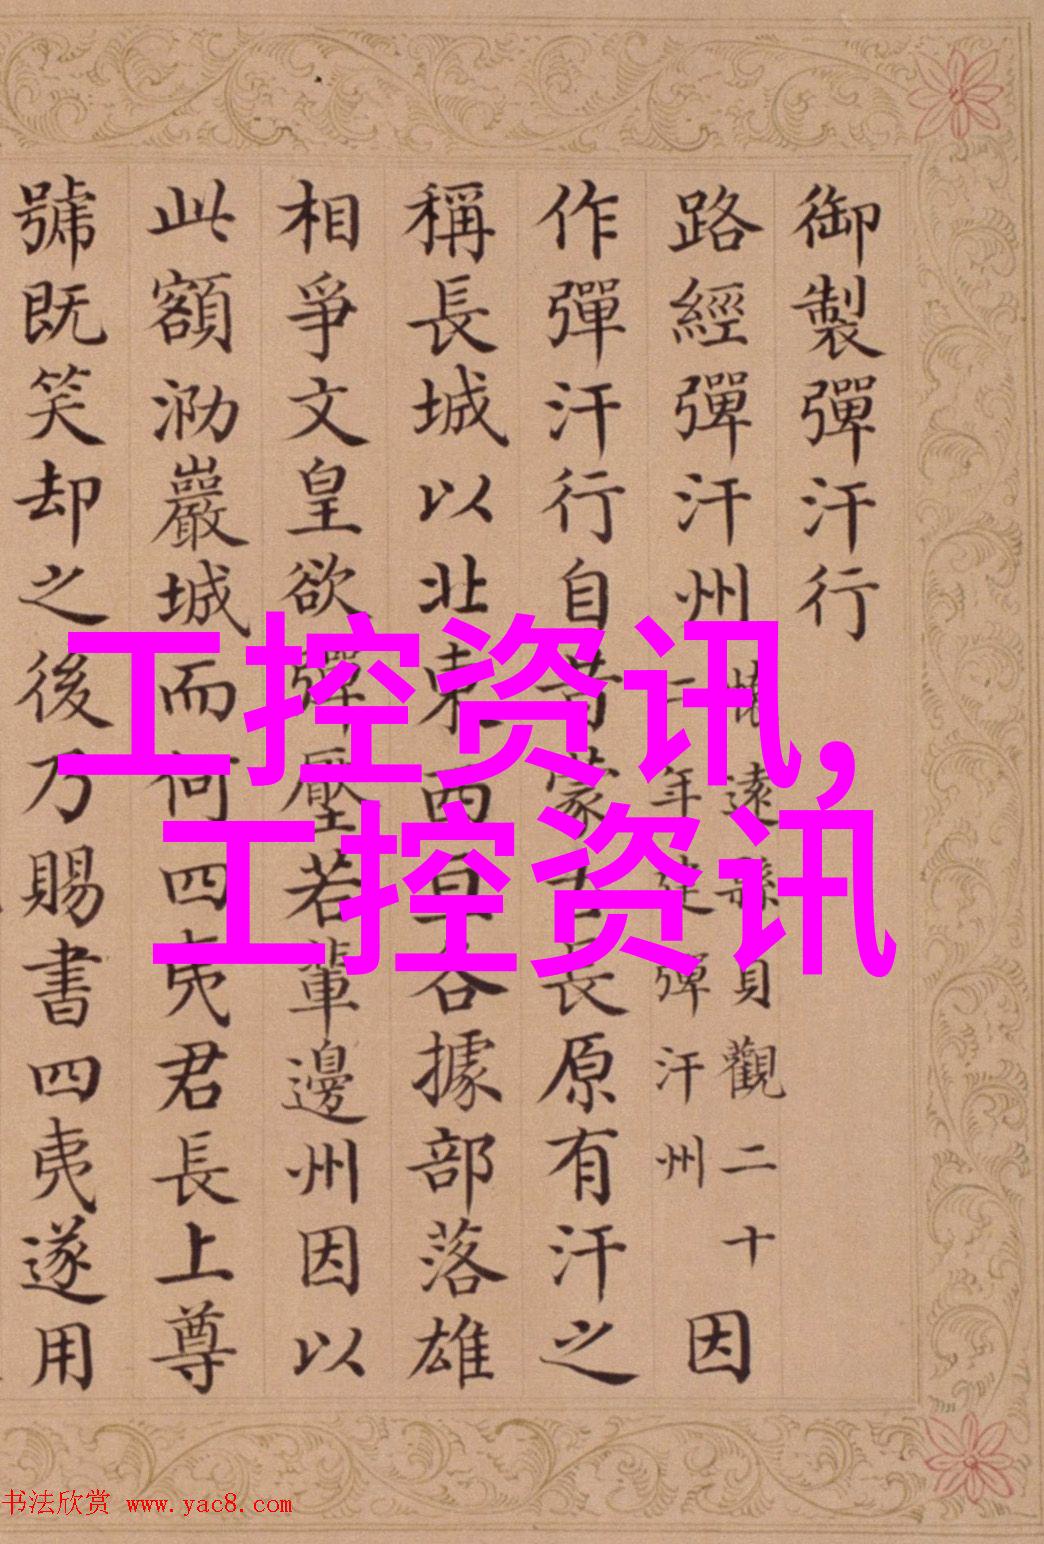 御製彈汗行
路經彈汗州
懷遠縣貞觀二十
一年建彈汗州
因
作彈汗行自昔蒙古長原有汗之
稱長城以北東西亘各據部落雄
相爭文皇欲彈壓若輩邊州因以
此額泐巖城而何四夷君長上尊
號既笑却之後乃賜書四夷遂用
工控资讯,
工控资讯
书法欣赏 www.yac8.com